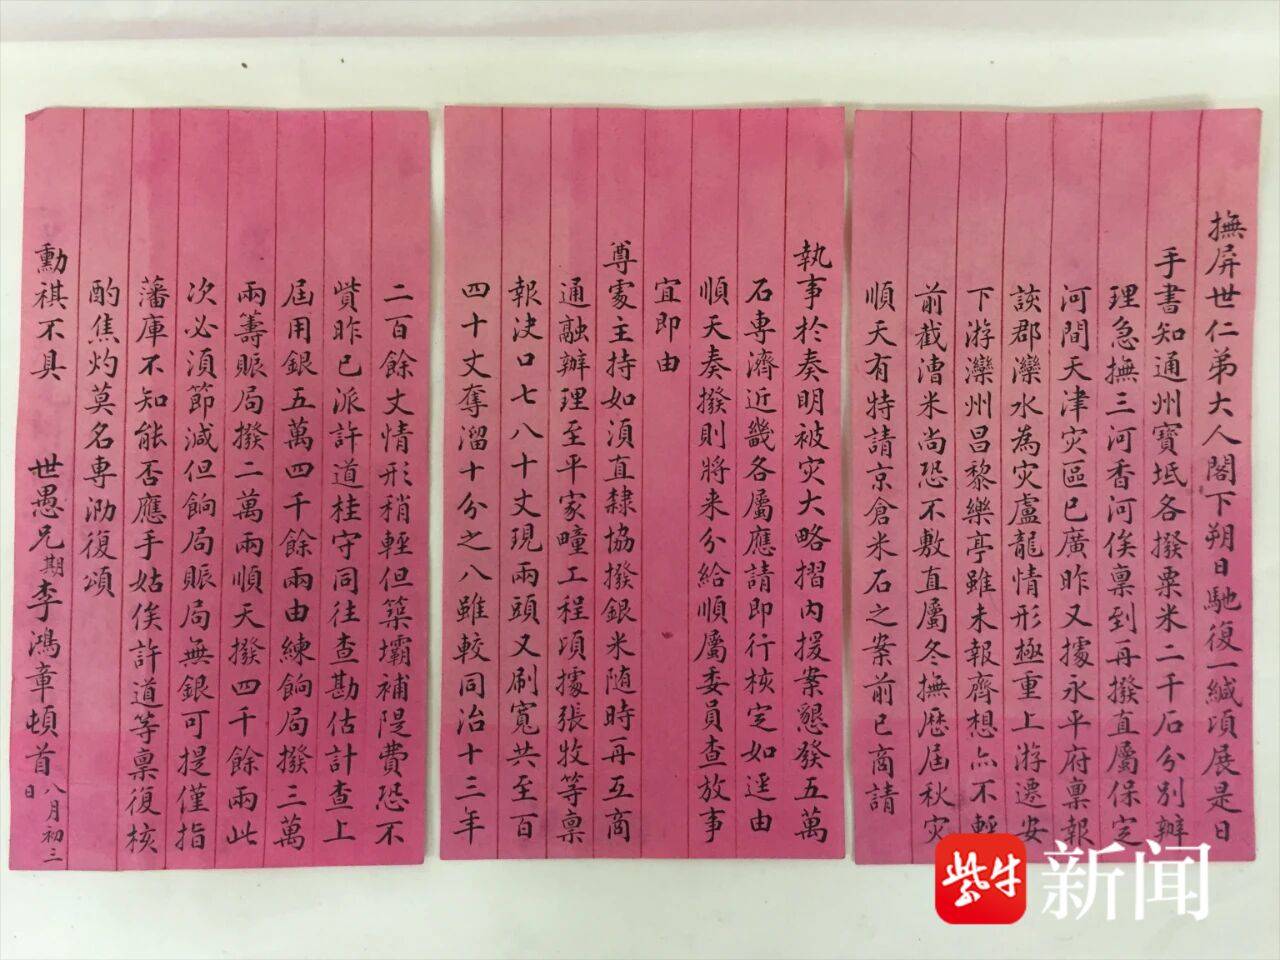 撫屏世仁弟大人閣下朔日馳復一緘頃展是日
手書知通州寶坻各撥粟米二千石分別辦
理急撫三河香河俟稟到再撥直屬保定
河間天津灾區已廣昨又據永平府稟報
該郡灤水為灾盧龍情形極重上游遷安
下游灤州昌黎樂亭雖未報齊想亦不輕
前截漕米尚恐不敷直屬冬撫歷屆秋灾
順天有特請京倉米石之案前已商請
執事於奏明被灾大略摺內援案懇發五萬
石專濟近畿各屬應請即行核定如逕由
順天奏撥則將来分給順屬委員查放事
宜即由
尊處主持如須直隸協撥銀米随時再互商
通融辦理至平家疃工程頃據張牧等稟
報決口七八十丈現兩頭又刷寬共至百
四十丈奪溜十分之八雖較同治十三年
二百餘丈情形稍輕但築壩補隄費恐不
貲昨已派許道桂守同往查勘估計查上
屆用銀五萬四千餘兩由練餉局撥三萬
兩籌賑局撥二萬兩順天撥四千餘兩此
次必須節減但餉局賑局無銀可提僅指
藩庫不知能否應手姑俟許道等稟復核
酌焦灼莫名專泐復頌
勳祺不具
世愚兄期李鴻章頓首八月初三日
紫牛新闻